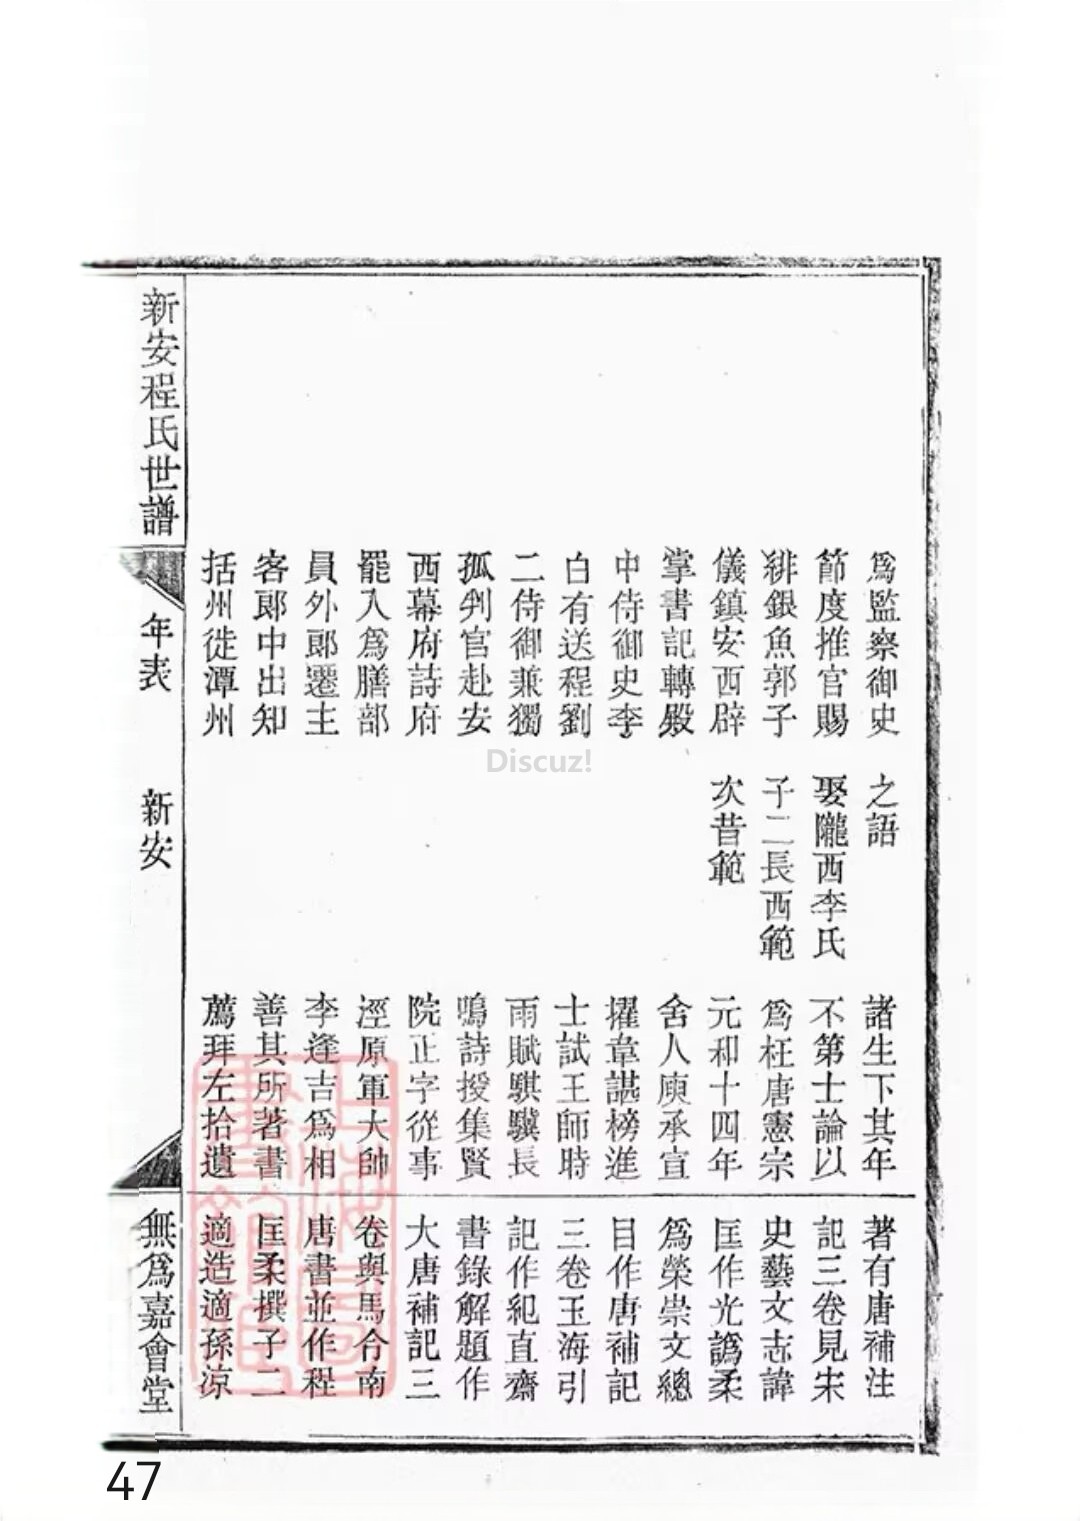 爲監察御史
節度推官賜
緋銀魚郭子
儀鎮安西辟
掌書記轉殿
中侍御史李
白有送程劉
二侍御兼獨
孤判官赴安
西幕府詩府
罷入爲膳部
員外郎遷主
客郎中出知
括州徙潭州
之語
娶隴西李氏
子二長西範
次昔範
諸生下其年
不第士論以
爲枉唐憲宗
元和十四年
舍人庾承宣
擢韋諶榜進
士試王師時
雨賦騏驥長
鳴詩授集賢
院正字從事
涇原軍大帥
李逢吉爲相
善其所著書
薦拜左拾遺
著有唐補注
記三卷見宋
史藝文志諱
匡作光譌柔
爲榮崇文總
目作唐補記
三卷玉海引
記作紀直齋
書錄解題作
大唐補記三
卷與馬令南
唐書並作程
匡柔撰子二
適造適孫涼
新安程氏世譜
年表
新安
無爲嘉會堂
Discuz!
47